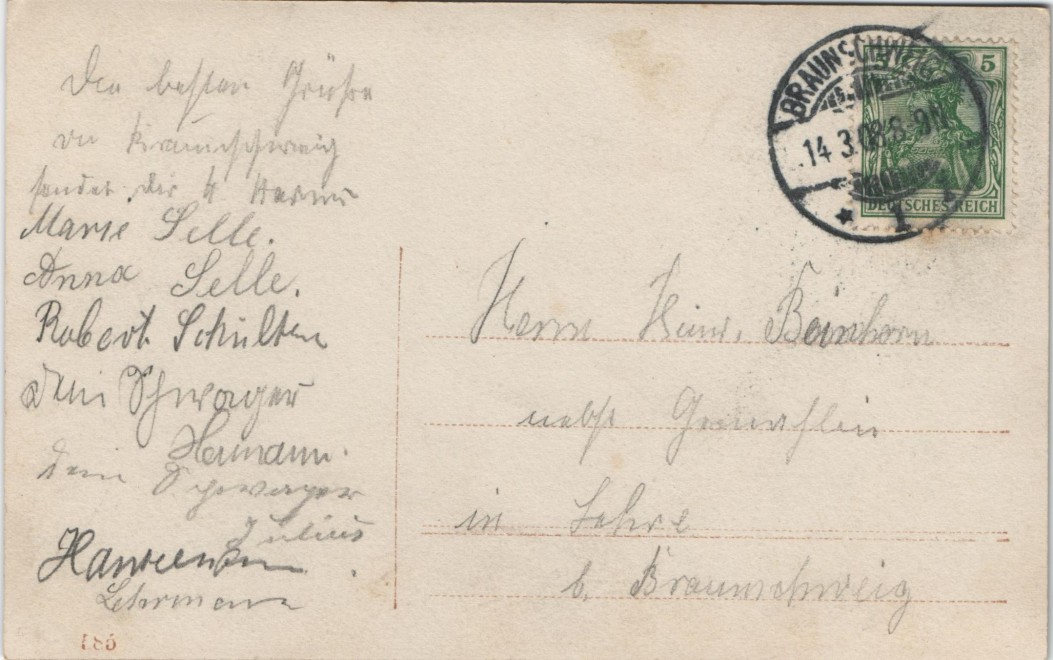 Die besten Grüße
von Braunschweig
sendet dir
Marie Selle.
Anna Selle.
Robert Schulten
Dein Schwager
Hermann.
Dein Schwager
Julius
Lehrmann
185
BRAUNSCHWEIG
14.3.08.8-9N.
* 1
5
DEUTSCHES REICH
Herrn Heinr. Beinhorn
nebst Gemahlin
in Lehre
b. Braunschweig